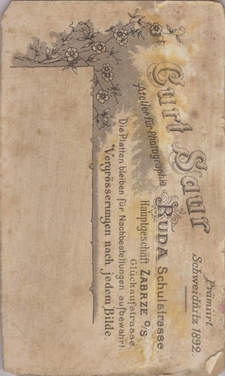 Prämiirt
Schweidnitz 1892.
Curt Saur
Atelier für Photographie
RUDA Schulstrasse
Hauptgeschäft ZABRZE O/S
Glückaufstrasse.
Die Platten bleiben für Nachbestellungen aufbewahrt.
Vergrösserungen nach jedem Bilde